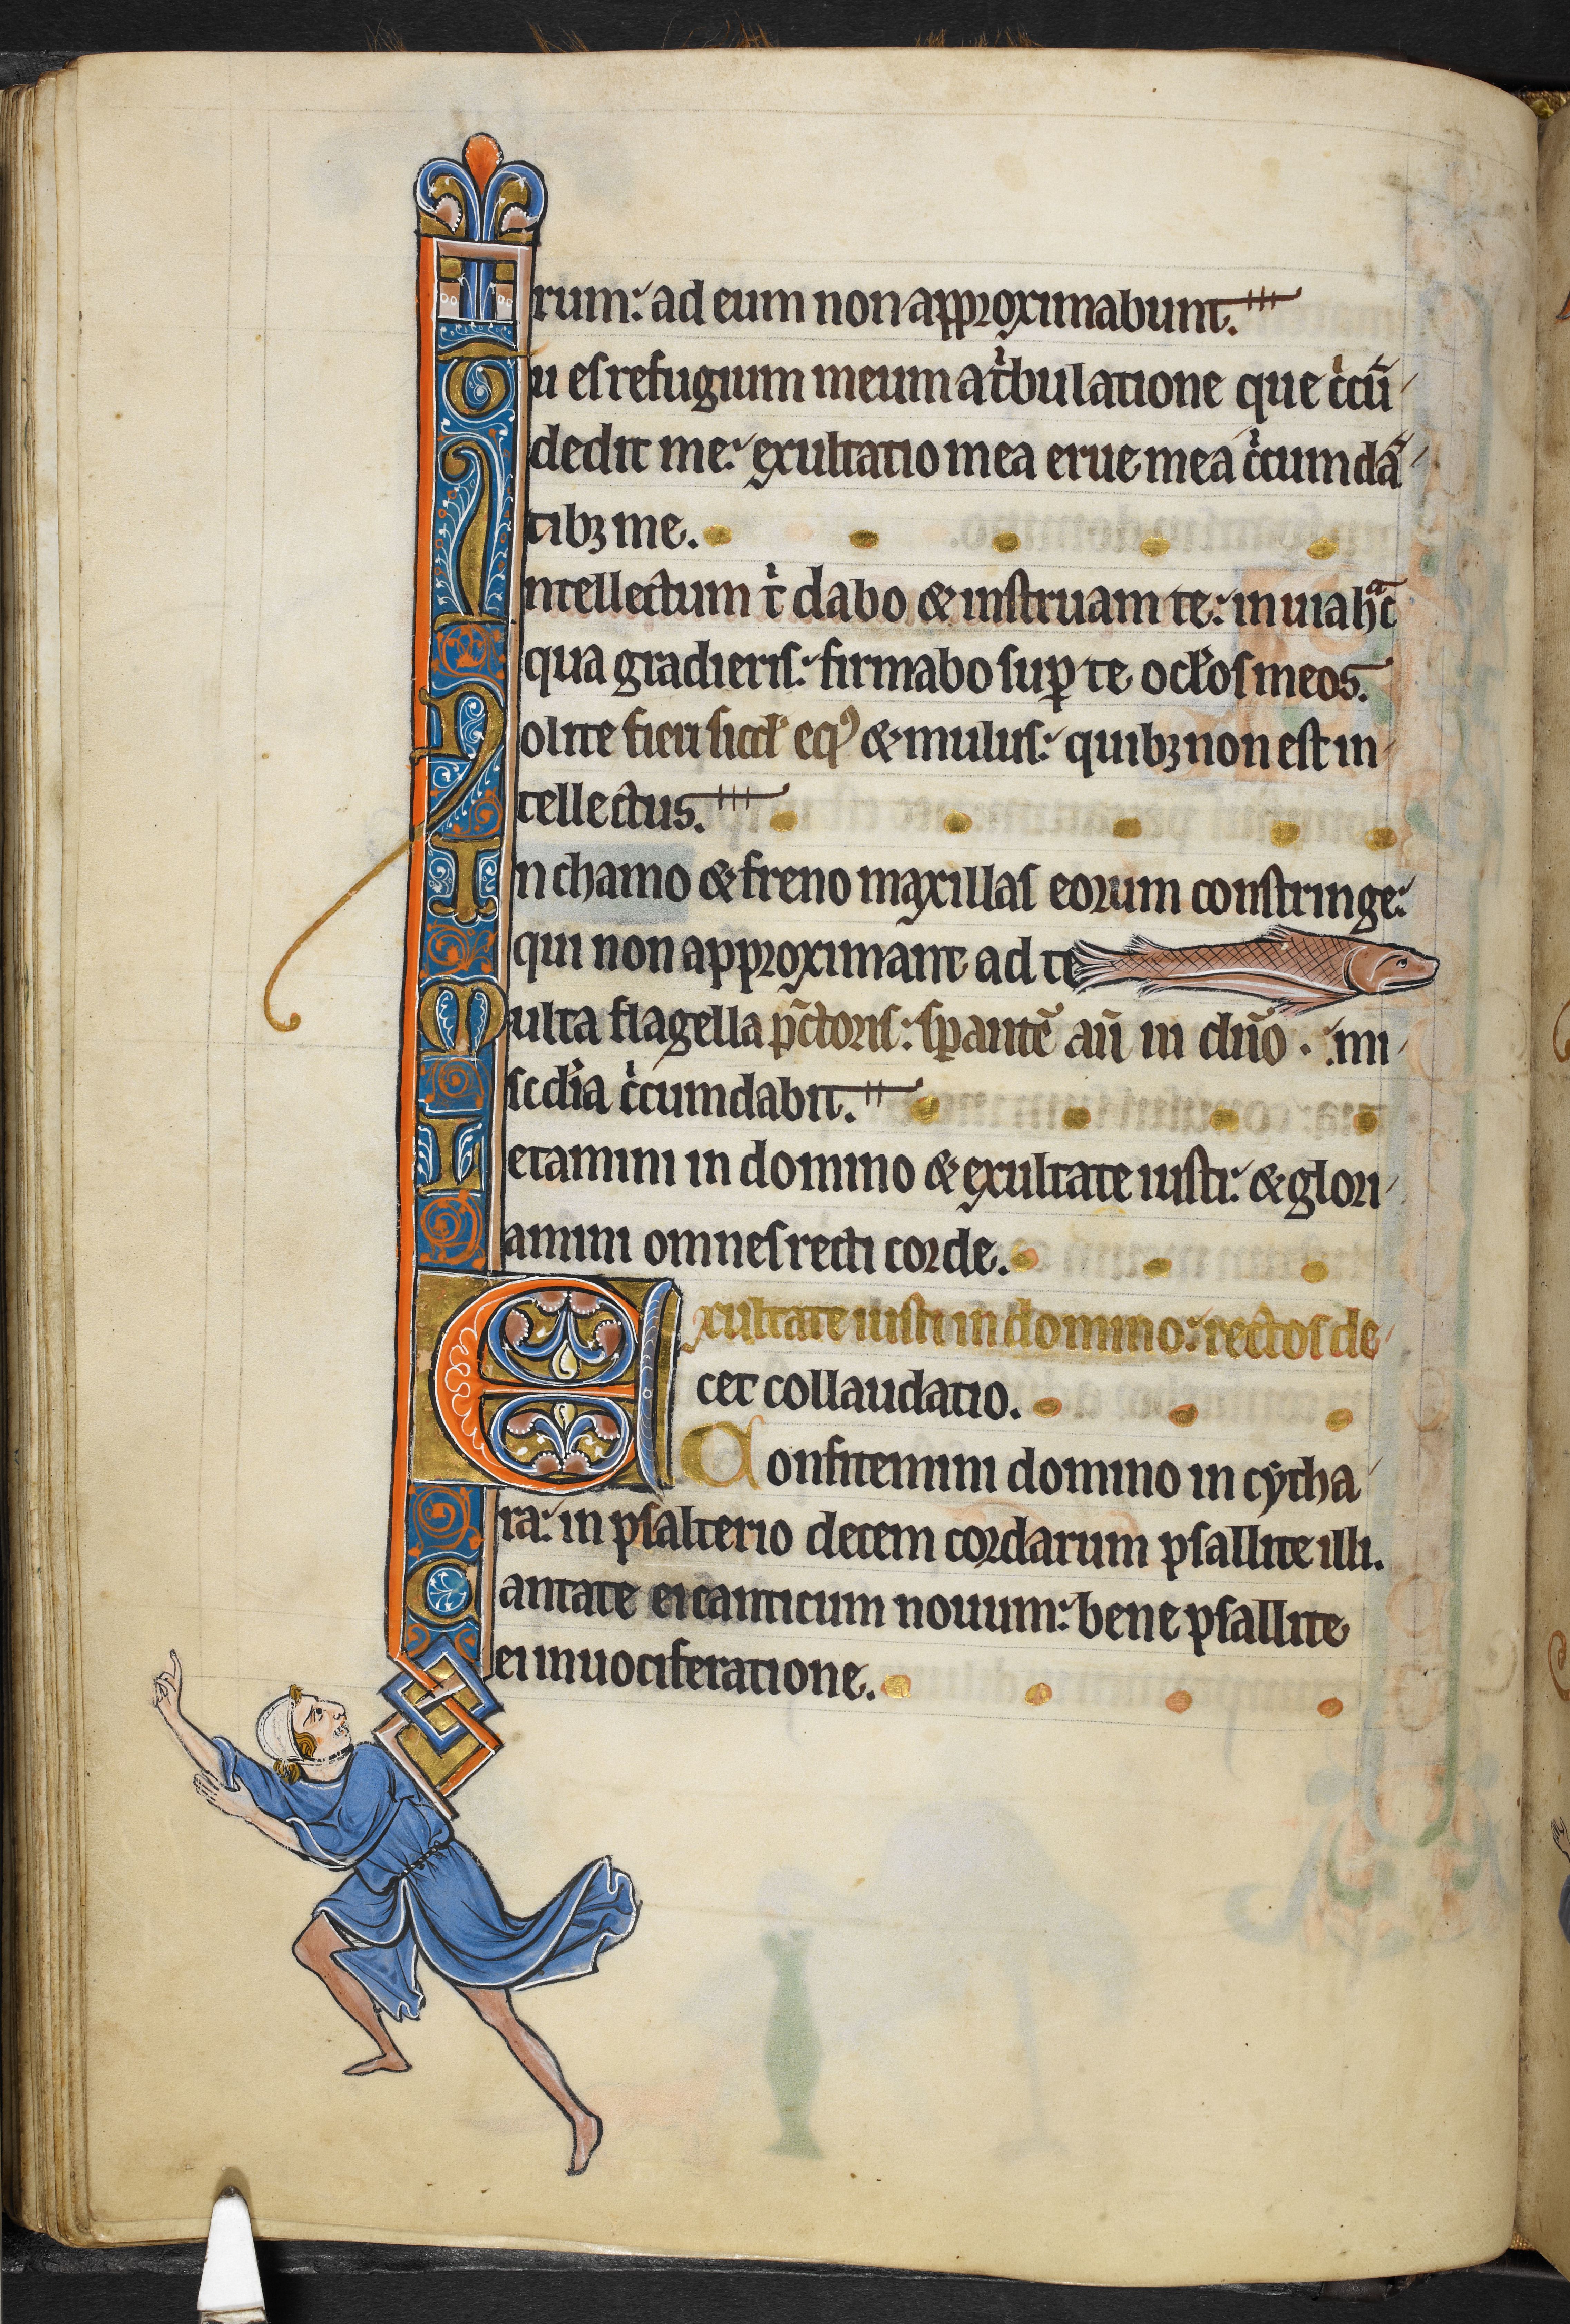 rum: ad eum non approximabunt.
Tu es refugium meum a tͥbulatione que cͥcū
dedit me: exultatio mea erue mea cͥcumdā
tibꝫ me.
Intellectum tͥ dabo & instruam te: in uia hᵃc
qua gradieris: firmabo suꝑ te oclꝉos meos.
Nolite fieri sicut eqꝰ & mulus: quibꝫ non est in
tellectus.
In chamo & freno maxillas eorum constringe:
qui non approximant ad te
Multa flagella pc̄toris: sꝑantē aū in dn̄o. mi
scdͥia cͥcumdabit.
Letamini in domino & exultate iusti: & glori
amini omnes recti corde.
Exultate iusti in domino: rectos de
cet collaudatio.
Confitemini domino in cytha
ra: in psalterio decem cordarum psallite illi.
Cantate ei canticum nouum: bene psallite
ei in uociferatione.